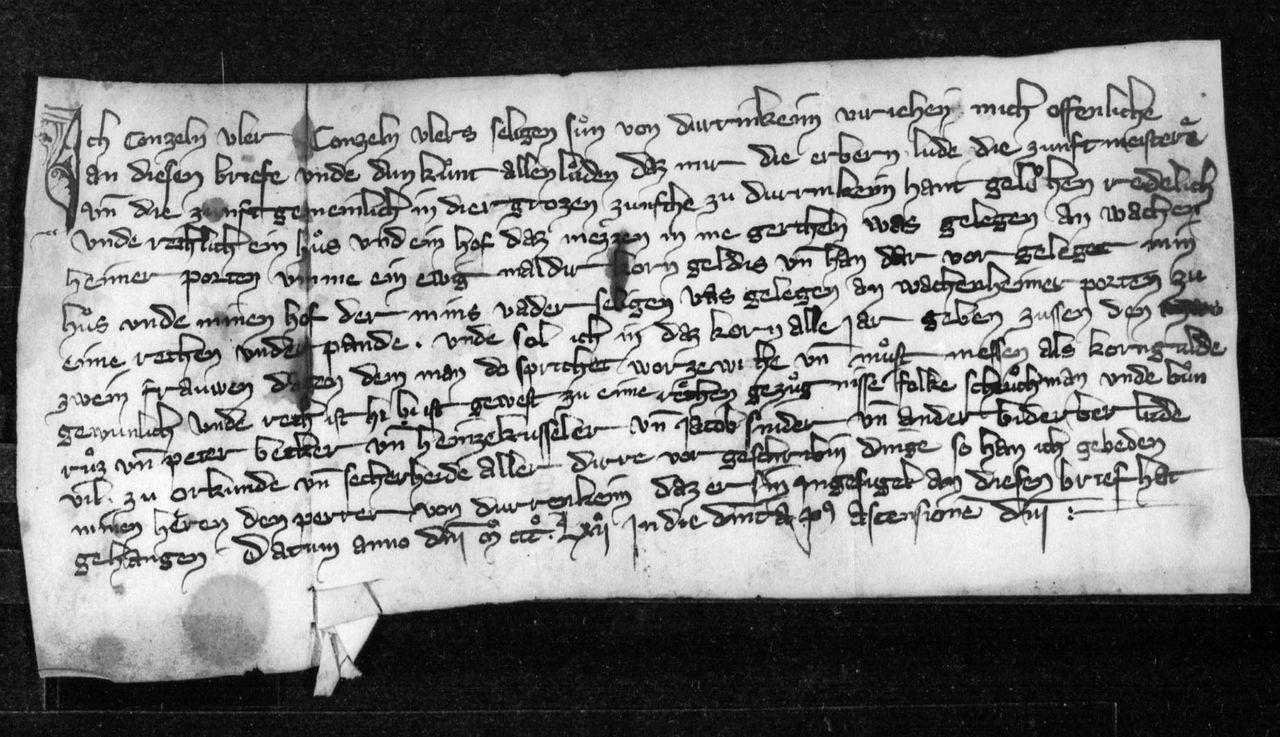 Ich Conzeln vler Conzeln vlers seligen sůn von durrinkeim viriehen mich offenliche
an diesen briefe vnde dun kůnt allen lůden daz mir die erbern lude die zunftmeistere
vn̄ die zunft gemeinlich in dier grozen zunfthe zu durrinkeim hant gelůhen redelich
vnde rechlich ein hůs vnd ein hof daz in me gertheln was gelegen an wachen
heimer porten vmme ein ewig maldir korn geldis vn̄ han dar vor geleget min
hůs vnde minen hof der mins vader seligen was gelegen an wachenheimer porten zu
eime rechen vnder pande . vnde sol ich in daz korn alle iar geben zussen den
zwein frauwen dagen dem man do sprichet worzewihe vn̄ můst messen als korngulde
gewunlich vnde rech ist hi bi ist gewest zu eime rechen gezůgnisse folke schůchman vnde
růz vn̄ peter becker vn̄ heinze kusseler vn̄ Jacob snider vn̄ ander biderber lude
vil . zu orkunde vn̄ secherheide aller dirre vor geschribin dinge so han ich gebeden
minen heren den perrer von durrenkeim daz er sin Ingesigel an diesen brief hat
gehangen Datum anno dn̄i mͦ cccͦ . Lxiiͦ In die p9 ascensione dn̄i :